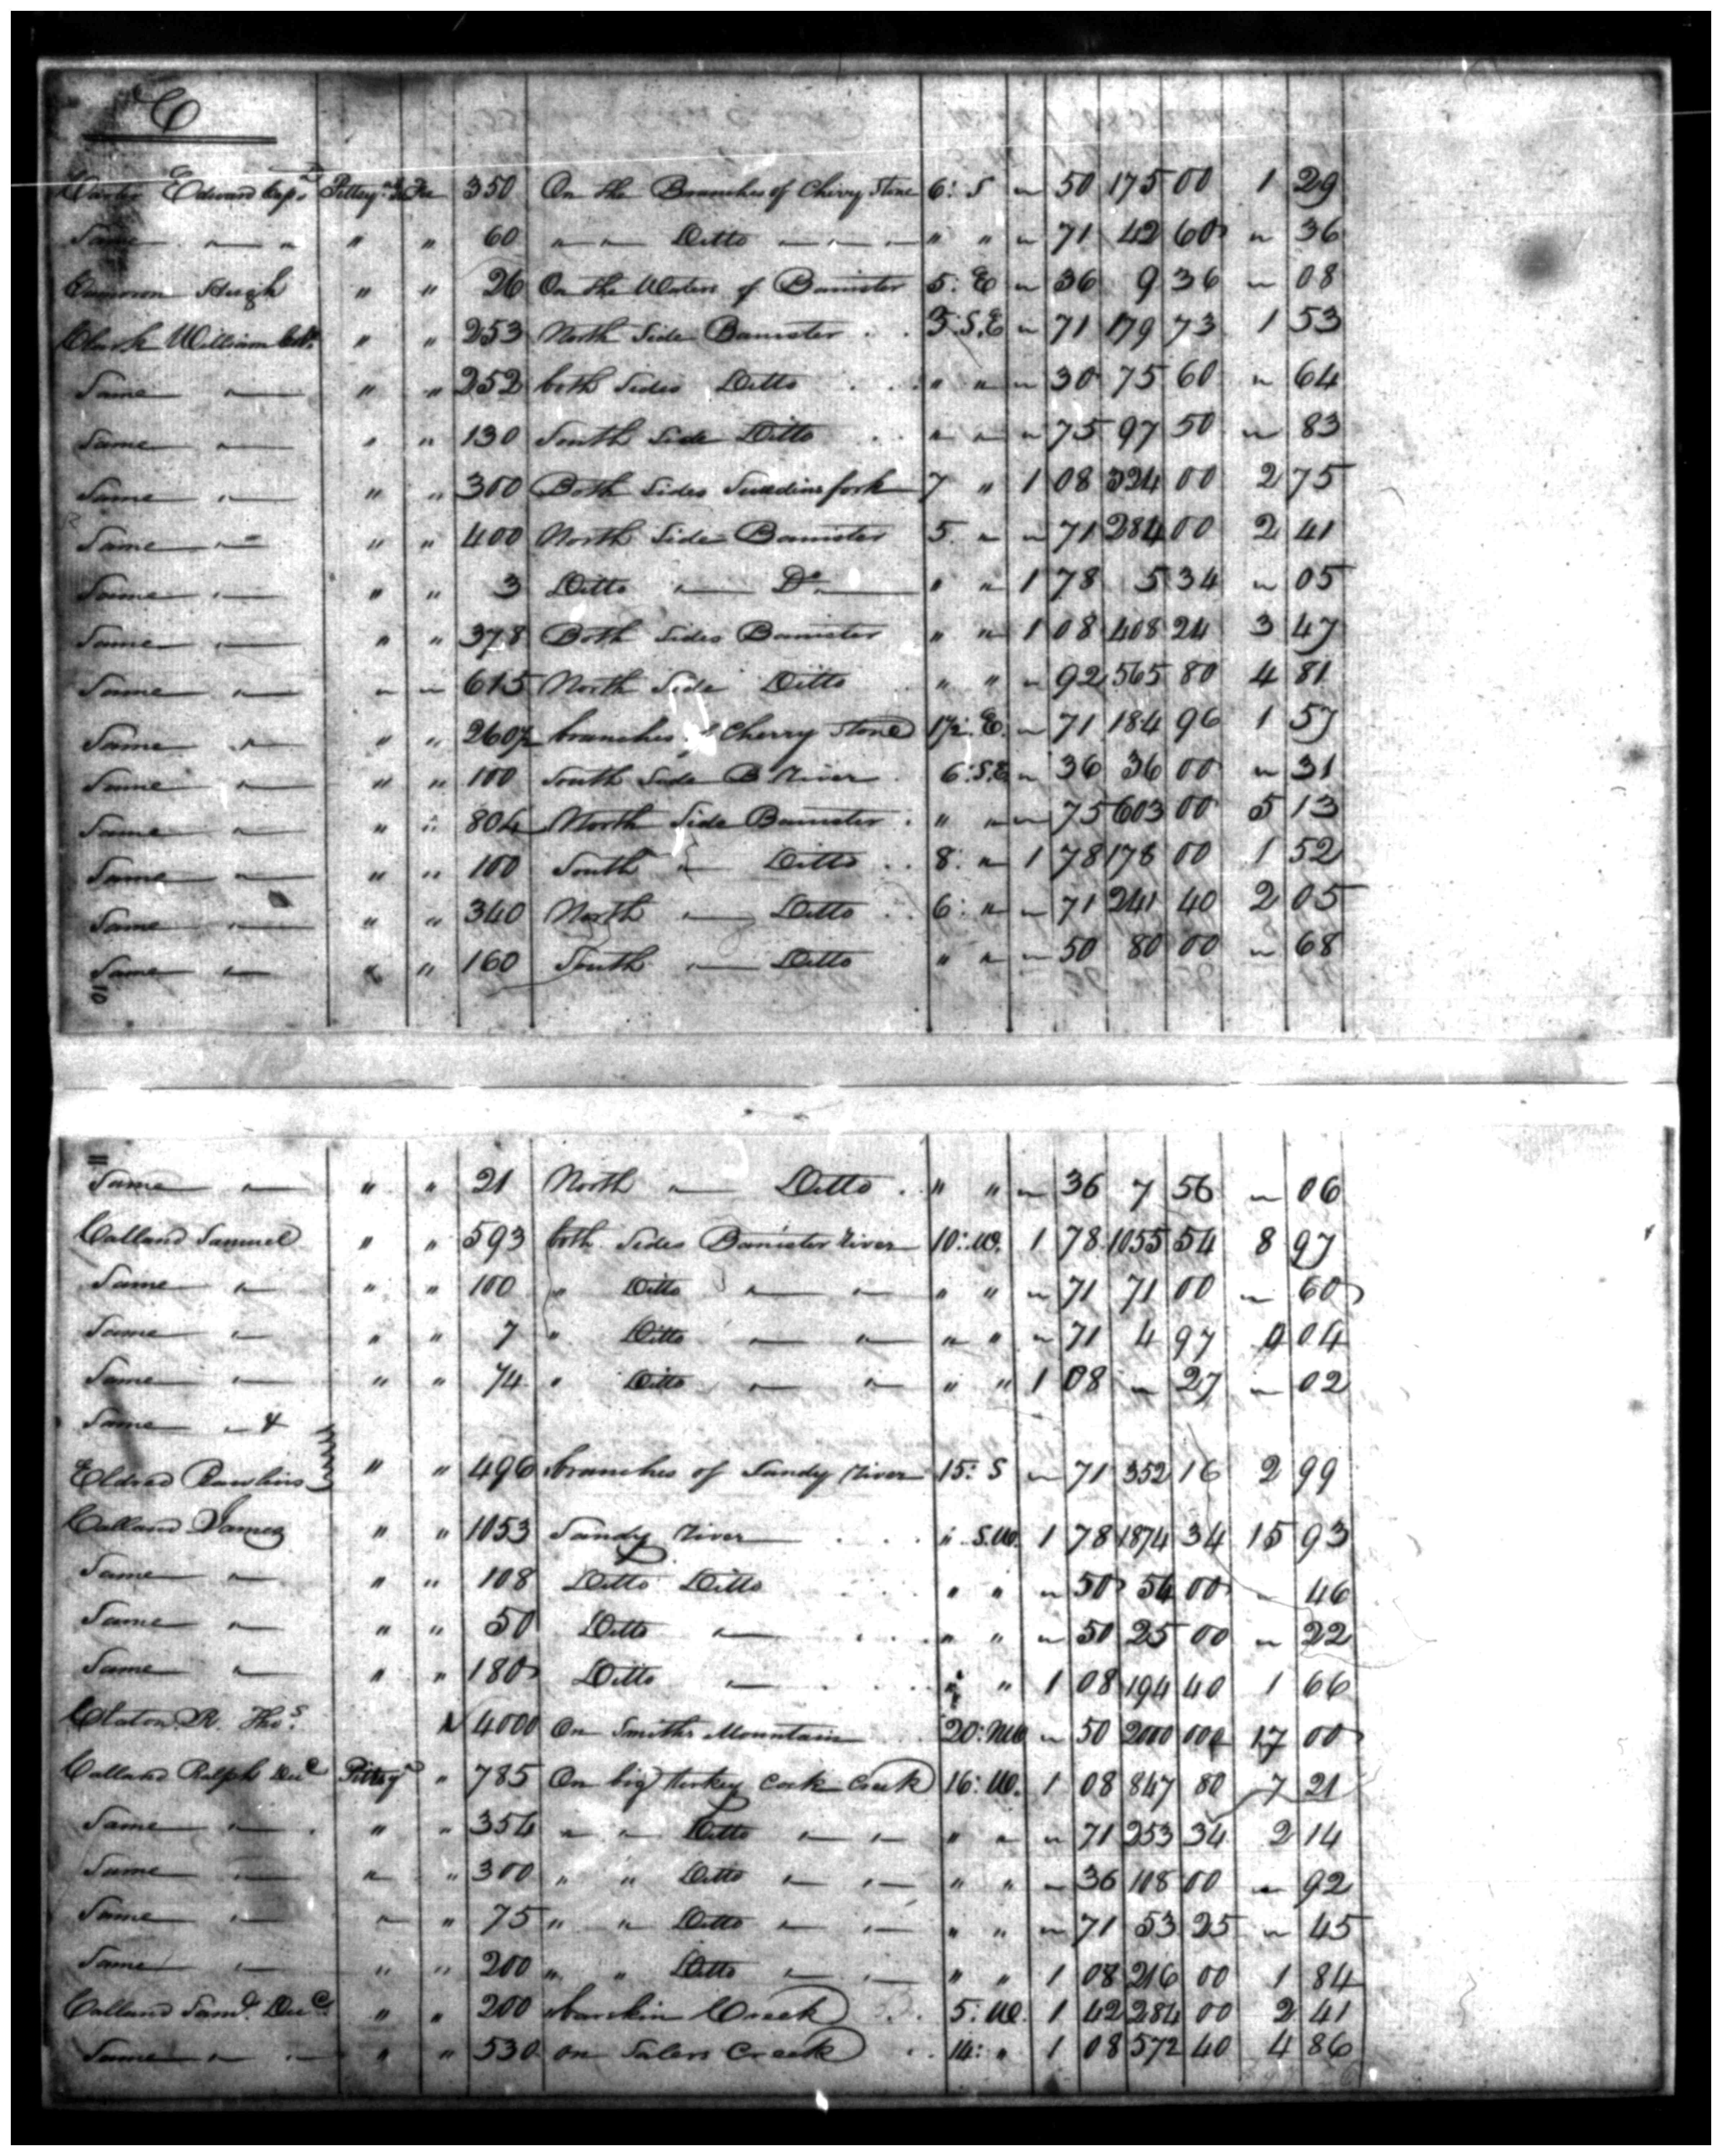 C
Carter Edward Capt. Pittsyl.a Fee 350 On the Branches of Cherry Stone 6: S " 50 175 00 1 29
Same " " " " 60 " " Ditto " " " " " 71 42 60 " 36
Cameron Hugh " " 26 On the Waters of Banister 5: E " 36 9 36 " 08
Clark William Col. " " 253 North Side Banister 5: S.E " 71 179 73 1 53
Same " " " 252 both Sides Ditto " " " 30 75 60 " 64
Same " " " 130 South Side Ditto " " " 75 97 50 " 83
Same " " " 300 Both Sides fork 7 " 1 08 324 00 2 75
Same " " " 400 North Side Banister 5 " " 71 284 00 2 41
Same " " " 3 Ditto " Do " " 1 78 5 34 " 05
Same " " " 378 Both Sides Banister " " 1 08 408 24 3 47
Same " " " 615 North Side Ditto " " " 92 565 80 4 81
Same " " " 260½ branches of Cherry Stone 1½: E. " 71 184 96 1 57
Same " " " 100 South Side B River 6: S.E " 36 36 00 " 31
Same " " " 804 North Side Banister " " " 75 603 00 5 13
Same " " " 100 South " Ditto 8: " 1 78 178 00 1 52
Same " " " 340 North " Ditto 6: " " 71 241 40 2 05
Same " " " 160 South " Ditto " " " 50 80 00 " 68
Same " " " 21 North " Ditto " " " 36 7 56 " 06
Calland Samuel " " 593 both Sides Banister River 10: W. 1 78 1055 54 8 97
Same " " " 100 " Ditto " " " " " 71 71 00 " 60
Same " " " 7 " Ditto " " " " " 71 4 97 0 04
Same " " " 74 " Ditto " " " " 1 08 " 27 " 02
Same " &
Eldred Rawlins " " 496 branches of Sandy River 15: S " 71 352 16 2 99
Calland James " " 1053 Sandy River " S.W. 1 78 1874 34 15 93
Same " " " 108 Ditto Ditto " " " 50 54 00 " 46
Same " " " 50 Ditto " " " " 50 25 00 " 22
Same " " " 180 Ditto " " " 1 08 194 40 1 66
Claton R. Thos. 4000 On Smiths Mountain 20: NW " 50 2000 00 17 00
Calland Ralph Decd Pittsyl " 785 On big turkey Cock Creek 16: W. 1 08 847 80 7 21
Same " " " 354 " " Ditto " " " " " 71 253 34 2 14
Same " " " 300 " " Ditto " " " " " 36 108 00 " 92
Same " " " 75 " " Ditto " " " " " 71 53 25 " 45
Same " " " 200 " " Ditto " " " " 1 08 216 00 1 84
Calland Saml. Decd. " " 200 bearskin Creek 5: W. 1 42 284 00 2 41
Same " " " " 530 on Salen Creek 14: " 1 08 572 40 4 86